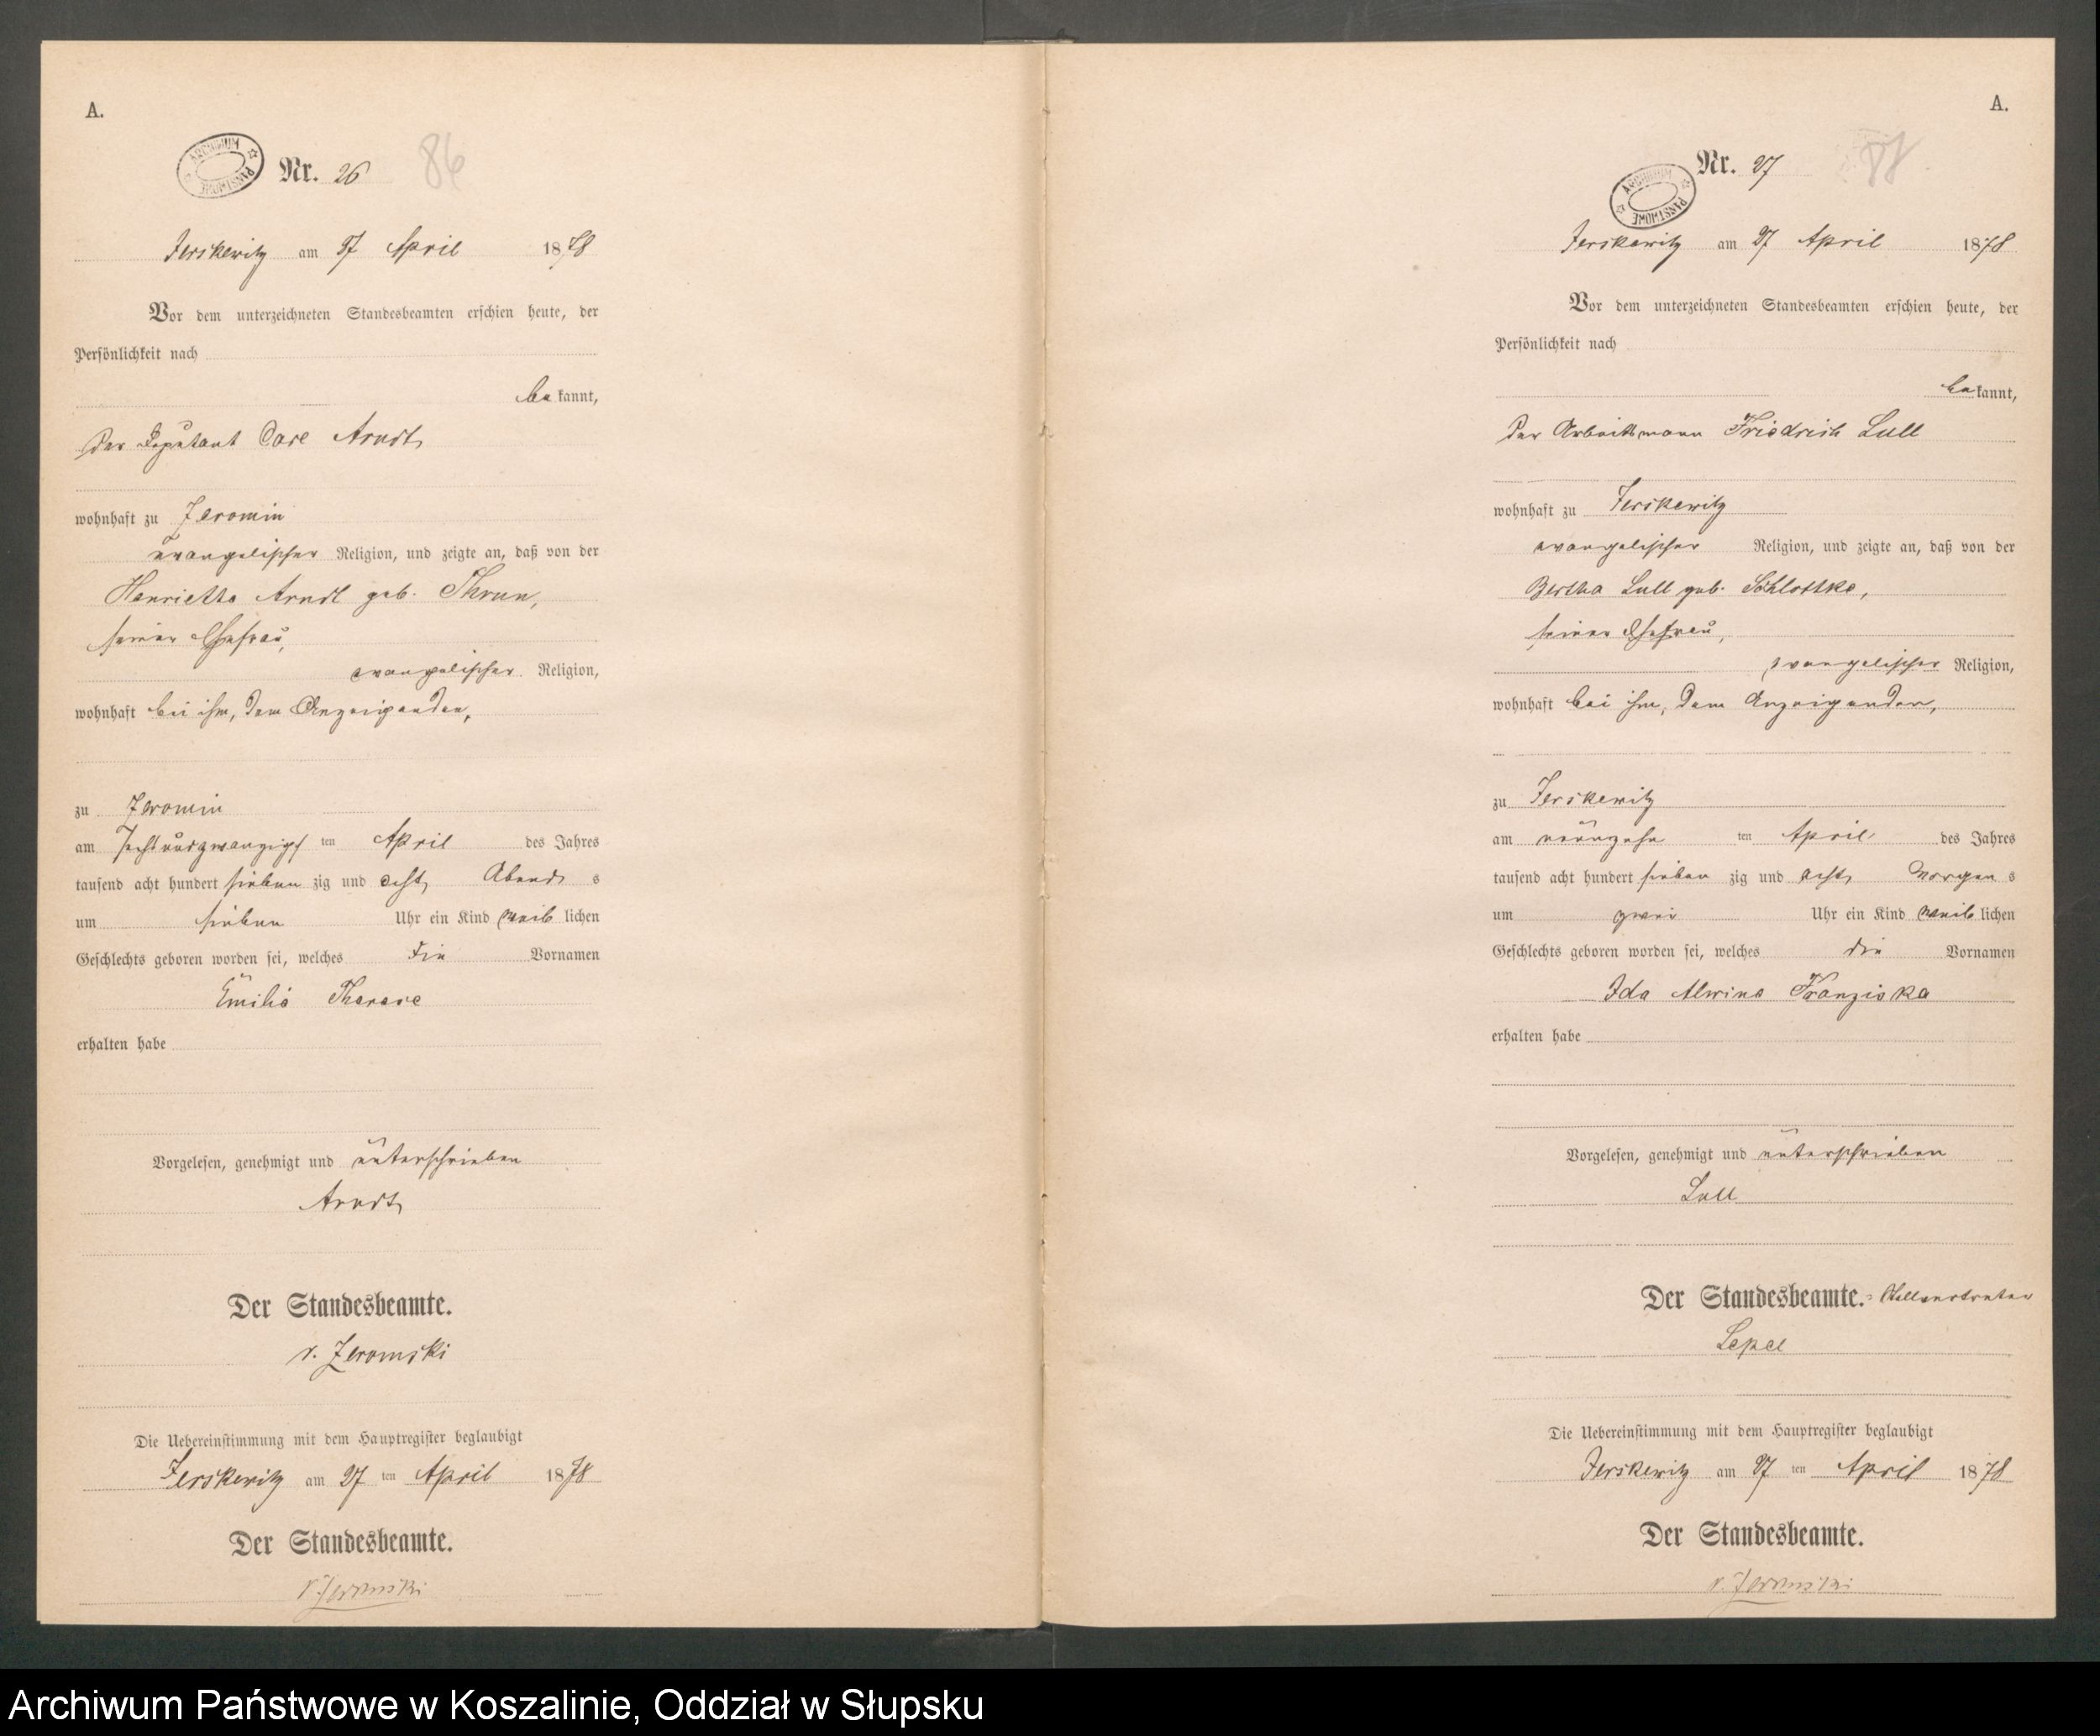 A.
ARCHIWUM PAŃSTWOWE
Nr. 26
86
Jerskewitz am 27 April 1878
Vor dem unterzeichneten Standesbeamten erschien heute, der
Persönlichkeit nach
be kannt,
der Deputant Carl Arndt
wohnhaft zu Jeromin
evangelischer Religion, und zeigte an, daß von der
Henriette Arndt geb. Thrun,
seiner Ehefrau,
evangelischer Religion,
wohnhaft bei ihm, dem Anzeigenden,
zu Jeromin
am sechsundzwanzigs ten April des Jahres
tausend acht hundert sieben zig und acht Abend s
um sieben Uhr ein Kind weib lichen
Geschlechts geboren worden sei, welches die Vornamen
Emilie Therese
erhalten habe
Vorgelesen, genehmigt und unterschrieben
Arndt
Der Standesbeamte.
v. Zeromski
Die Uebereinstimmung mit dem Hauptregister beglaubigt
Jerskewitz am 27 ten April 1878
Der Standesbeamte.
v. Zeromski
A.
ARCHIWUM PAŃSTWOWE
Nr. 27
Jerskewitz am 27 April 1878
Vor dem unterzeichneten Standesbeamten erschien heute, der
Persönlichkeit nach
be kannt,
der Arbeitsmann Friedrich Lull
wohnhaft zu Jerskewitz
evangelischer Religion, und zeigte an, daß von der
Bertha Lull geb. Schlottke,
seiner Ehefrau,
evangelischer Religion,
wohnhaft bei ihm, dem Anzeigenden,
zu Jerskewitz
am neunzehn ten April des Jahres
tausend acht hundert sieben zig und acht Morgen s
um zwei Uhr ein Kind weib lichen
Geschlechts geboren worden sei, welches die Vornamen
Ida Alwine Franziska
erhalten habe
Vorgelesen, genehmigt und unterschrieben
Lull
Der Standesbeamte. Stellvertreter
Lepel
Die Uebereinstimmung mit dem Hauptregister beglaubigt
Jerskewitz am 27 ten April 1878
Der Standesbeamte.
v. Zeromski
Archiwum Państwowe w Koszalinie, Oddział w Słupsku